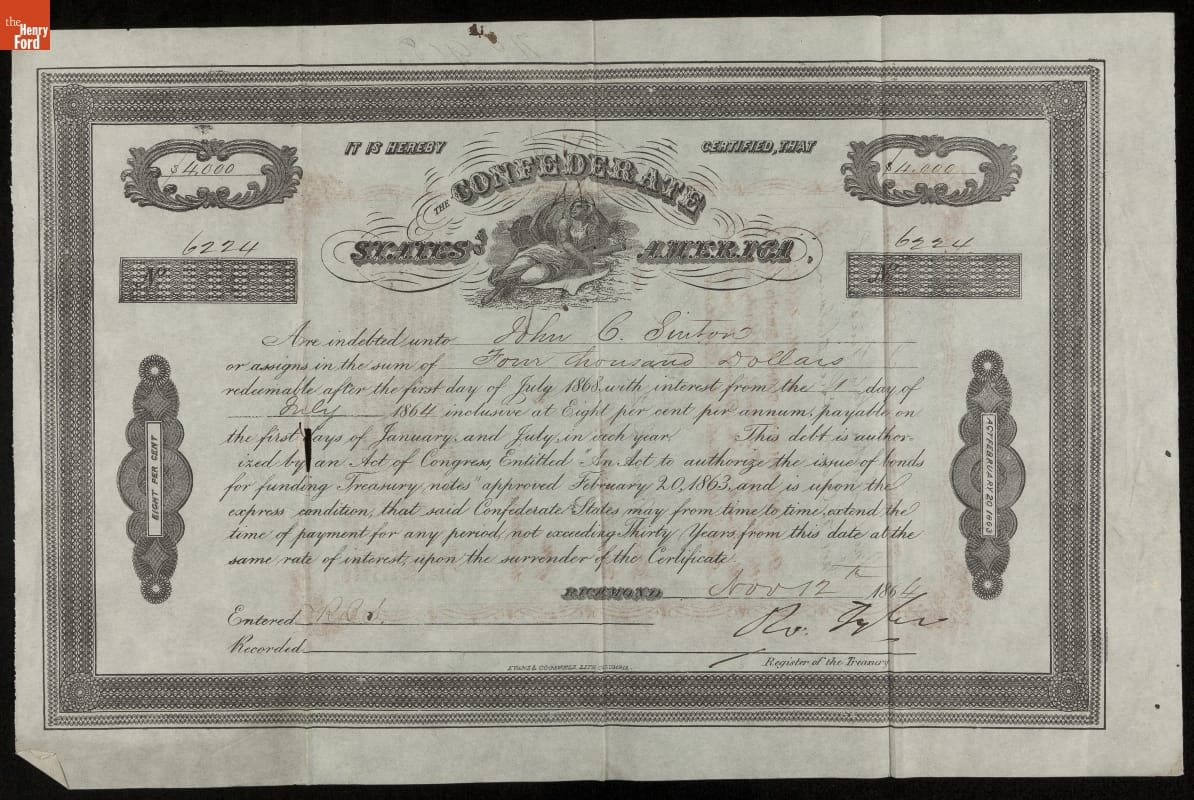 the Henry Ford
IT IS HEREBY CERTIFIED, THAT
$4,000 $4,000
THE CONFEDERATE
6224 6224
STATES AMERICA,
No No
Are indebted unto John C. Sinton
or assigns in the sum of Four thousand Dollars
redeemable after the first day of July 1868, with interest from the 1 day of
July 1864 inclusive at Eight per cent per annum, payable on
the first days of January, and July, in each year. This debt is author-
ized by an Act of Congress, Entitled "An Act to authorize the issue of bonds
for funding Treasury notes" approved February 20, 1863, and is upon the
express condition, that said Confederate States may from time to time, extend the
time of payment for any period, not exceeding Thirty Years, from this date at the
same rate of interest, upon the surrender of the Certificate.
EIGHT PER CENT
ACT FEBRUARY 20 1863
RICHMOND Nov 12th 1864
Entered
Ro. Tyler
Recorded
Register of the Treasury
EVANS & COGSWELL LITH COLUMBIA.